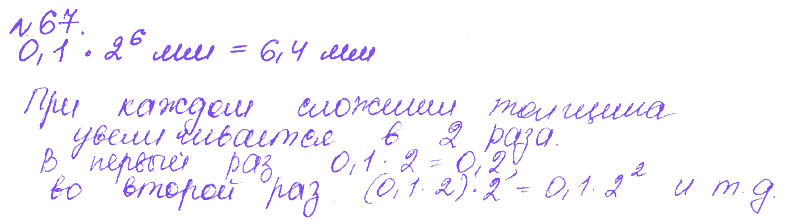 №67.
0,1 · 2⁶ мм = 6,4 мм
При каждом сложении толщина
увеличивается в 2 раза.
В первый раз 0,1 · 2 = 0,2,
во второй раз (0,1 · 2) · 2 = 0,1 · 2² и т.д.